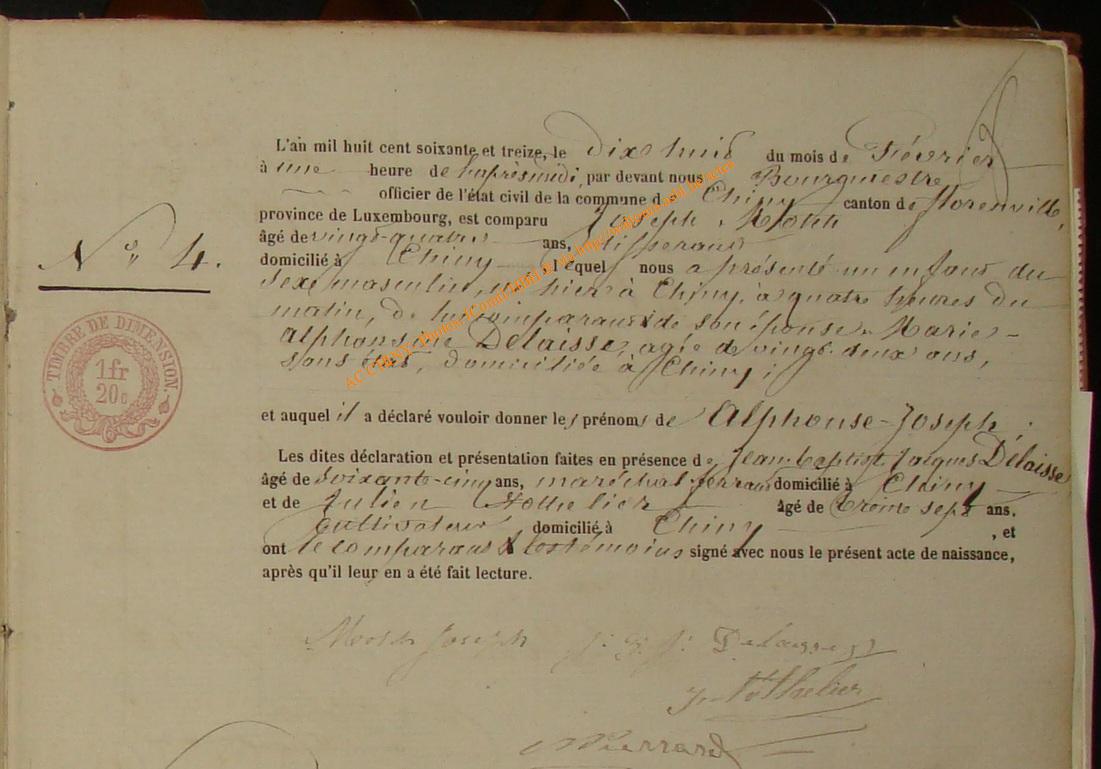 L'an mil huit cent soixante et treize, le dix huit du mois de Février
à une heure de l'aprèsmidi, par devant nous Bourgmestre
officier de l'état civil de la commune de Chiny canton de Florenville,
province de Luxembourg, est comparu Joseph
âgé de vingt-quatre ans, Tisserand
domicilié à Chiny lequel nous a présenté un enfant du
sexe masculin, né hier à Chiny, à quatre heures du
matin, de lui comparant & de son épouse Marie-
Alphonsine Délaisse, agée de vingt-deux ans,
sans état, domiciliée à Chiny;
et auquel il a déclaré vouloir donner les prénoms de Alphonse-Joseph.
Les dites déclaration et présentation faites en présence de Jean-Baptist Jacques Délaisse
âgé de soixante-cinq ans, maréchal ferrant domicilié à Chiny
et de Julien âgé de trente sept ans,
cultivateur domicilié à Chiny, et
ont le comparant & les témoins signé avec nous le présent acte de naissance,
après qu'il leur en a été fait lecture.
No. 4.
TIMBRE DE DIMENSION.
1fr
20c
Joseph
J. B. J. Delaisse
Pierrard